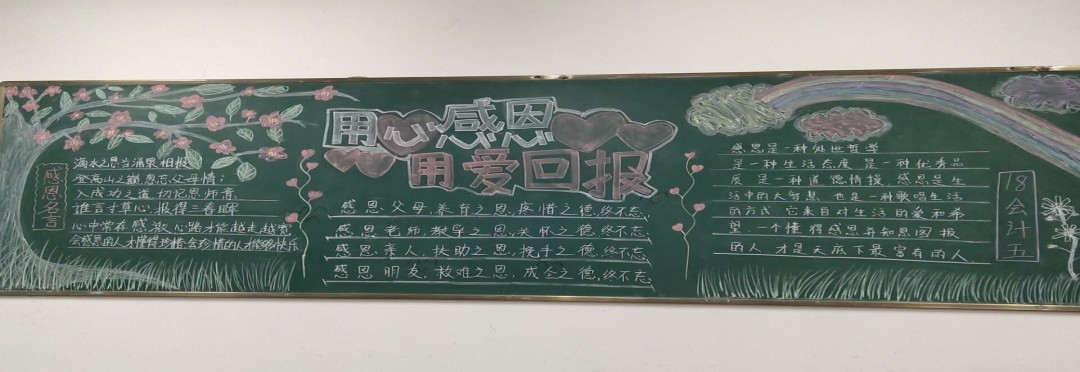 感恩名言
滴水之恩当涌泉相报
登高山之巅勿忘父母情;
入成功之道切记恩师育
谁言寸草心,报得三春晖
心中常存感激心路才能越走越宽
会感恩的人才懂得珍惜会珍惜的人才能够快乐
用心感恩
用爱回报
感恩父母,养育之恩,疼惜之德,终不忘
感恩老师,教导之恩,关怀之德,终不忘
感恩亲人,扶助之恩,挽手之德,终不忘
感恩朋友,救难之恩,成全之德,终不忘
感恩是一种处世哲学
是一种生活态度是一种优秀品
质是一种道德情操,感恩是生
活中的大智慧也是一种歌唱生活
的方式它来自对生活的爱和希
望,一个懂得感恩并知恩图报
的人才是天底下最富有的人
18会计五